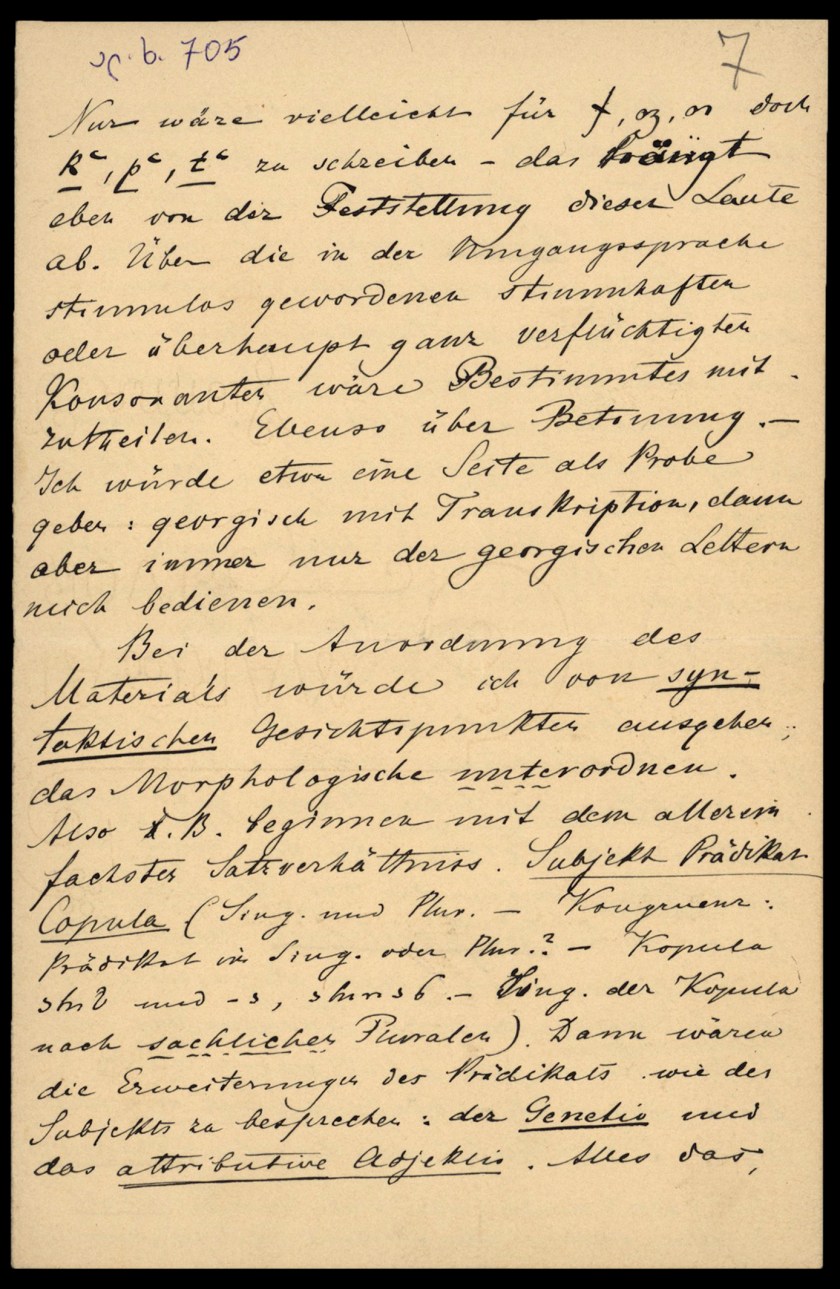 ср. б. 705
7
Nur wäre vielleicht für ქ, ფ, თ doch
kʿ, pʿ, tʿ zu schreiben – das hängt
eben von der Feststellung dieser Laute
ab. Über die in der Umgangssprache
stimmlos gewordenen stimmhaften
oder überhaupt ganz verflüchtigten
Konsonanten wäre Bestimmtes mit-
zutheilen. Ebenso über Betonung. –
Ich würde etwa eine Seite als Probe
geben: georgisch mit Transkription, dann
aber immer nur der georgischen Lettern
mich bedienen.
Bei der Anordnung des
Materials würde ich von syn-
taktischen Gesichtspunkten ausgehen;
das Morphologische unterordnen.
Also z. B. beginnen mit dem allerein
fachsten Satzverhältniss. Subjekt Prädikat
Copula (Sing. und Plur. – Kongruenz:
Prädikat im Sing. oder Plur.? – Kopula
არის und -ა, არიან. – Sing. der Kopula
nach sachlichen Pluralen). Dann wären
die Erweiterungen des Prädikats wie des
Subjekts zu besprechen: der Genetiv und
das attributive Adjektiv. Alles das,